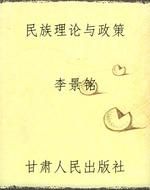 民族理论与政策
李景铭
甘肃人民出版社